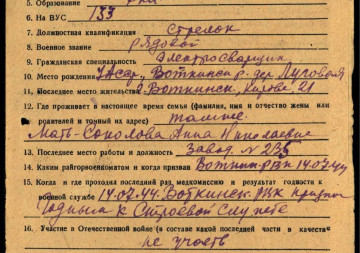 5. Образование
6. На ВУС 133
7. Должностная квалификация Стрелок
8. Военное звание рядовой
9. Гражданская специальность Электросварщик
10. Место рождения УАССР, Воткинск р. дер. Луговая
11. Последнее место жительства г. Воткинск, Кирова 21
12. Где проживает в настоящее время семья (фамилия, имя и отчество жены или
родителей и точный их адрес) там же.
Мать-Соколова Анна Николаевна
13. Последнее место работы и должность Завод N 235
14. Каким райгорвоенкоматом и когда призван Воткинск. РВК 14.02.44
15. Когда и где проходил последний раз медкомиссию и результат годности к
военной службе 14.02.44. Воткинск. РВК признан
Годным к Строевой Службе
16. Участие в Отечественной войне (в составе какой последней части в качестве
не участв